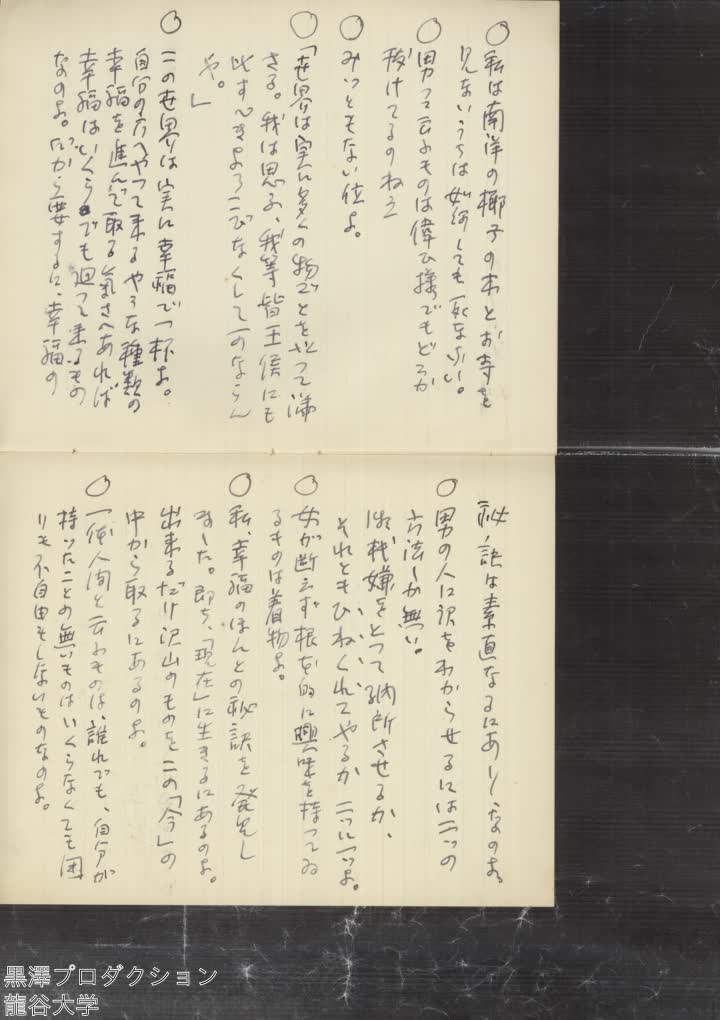 ○ 私は南洋の椰子の木とお寺を
見ないうちは如何しても死なない。
○ 男って云ふものは偉ひ様でもどこか
抜けてるのねえ
○ みっともない位よ。
○ 「世界は実に多くの物ごとを以って満
さる。我は思ふ、我等皆王侯にも
比すべきよろこびなくして可ならん
や。」
○ この世界は実に幸福で一杯よ。
自分の方へやって来るやうな種類の
幸福を進んで取る氣さへあれば
幸福はいくらでも廻って来るもの
なのよ。だから要するに、幸福の
秘訣は素直なるにあり、なのよ。
○ 男の人に訳をわからせるには二つの
方法しか無い。
御機嫌をとって納所させるか、
それともひねくれてやるか 二つに一つよ。
○ 女が断えず根を的に興味を持ってゐ
るものは着物よ。
○ 私、幸福のほんとの秘訣を発見し
ました。即ち、「現在」に生きるにあるのよ。
出来るだけ沢山のものをこの「今」の
中から取るにあるのよ。
○ 一体人間と云ふものは、誰れでも、自分が
持ったことの無いものはいくらなくても困
りも不自由もしないものなのよ。
黒澤プロダクション
龍谷大学